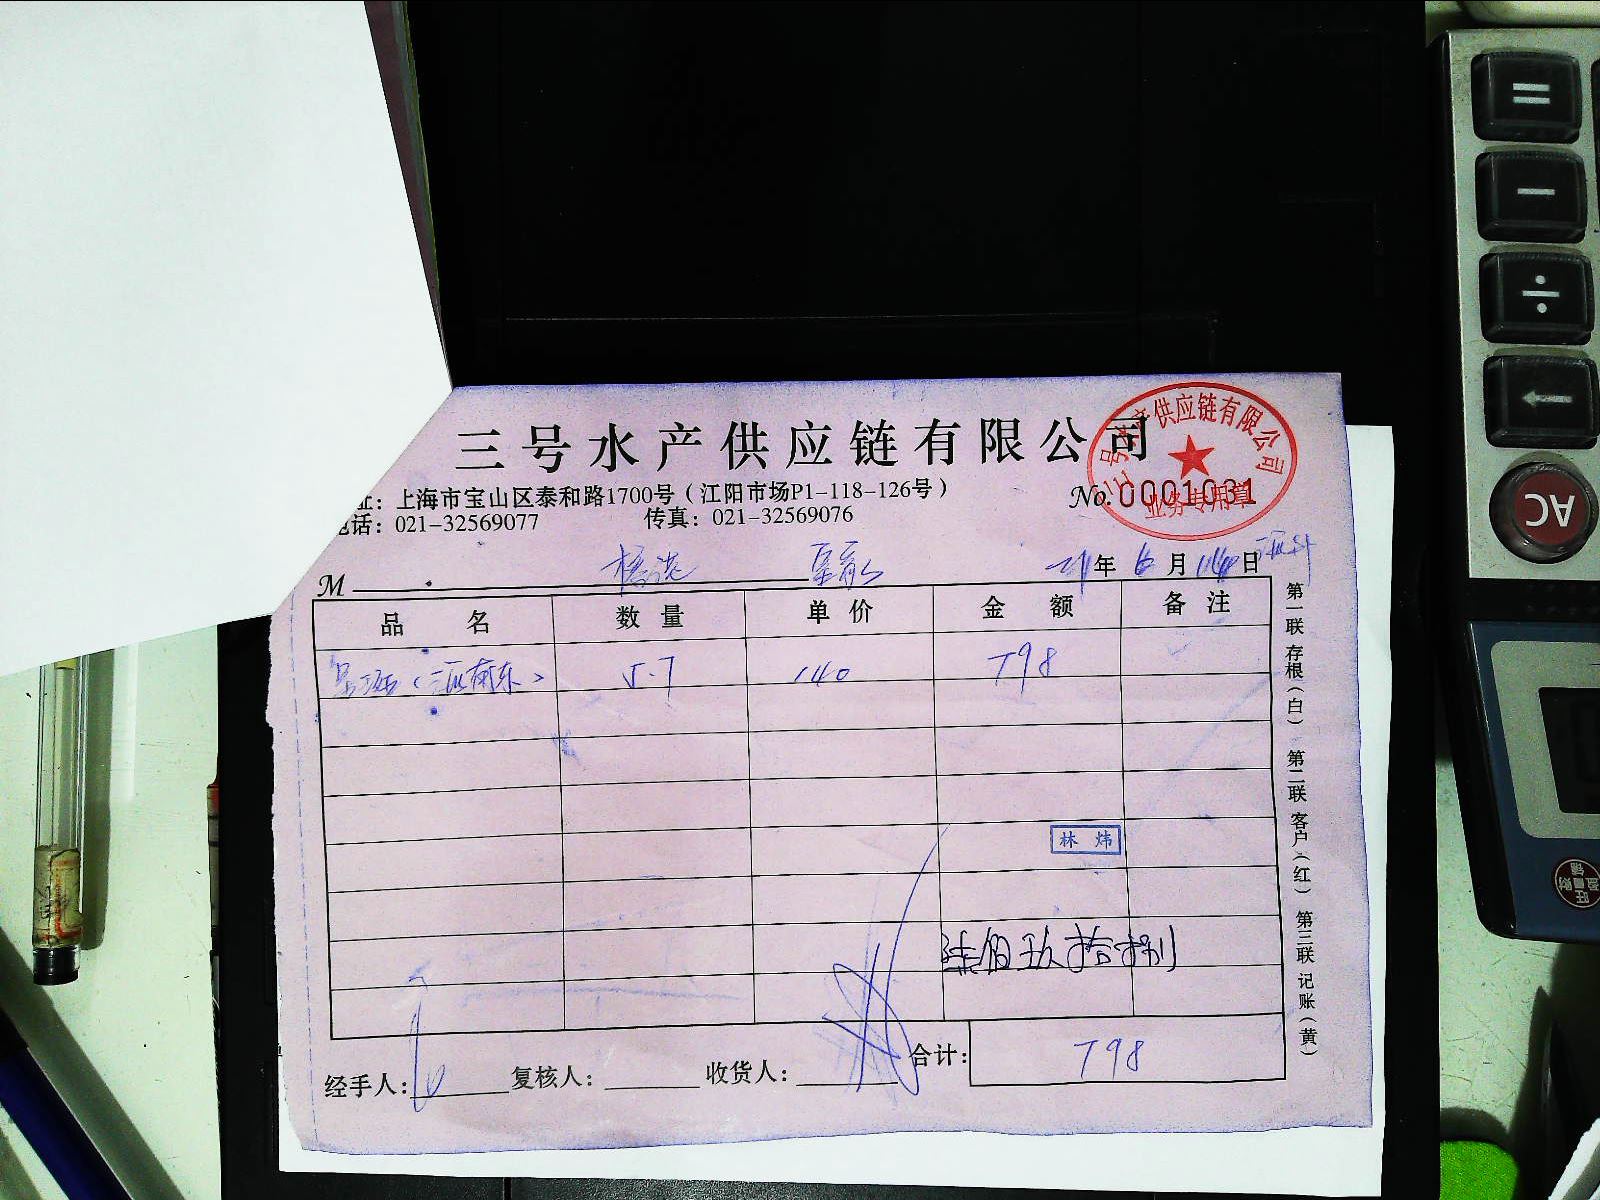 三号水产供应链有限公司
址：上海市宝山区泰和路1700号（江阳市场P1-118-126号）
电话：021-32569077 传真：021-32569076
No.0001031
三号水产供应链有限公司
业务专用章
M
年 6 月 日
品名 数量 单价 金额 备注
5.7 140 798
林炜
柒佰玖拾捌
合计： 798
经手人： 复核人： 收货人：
第一联 存根（白） 第二联 客户（红） 第三联 记账（黄）
=
−
÷
AC